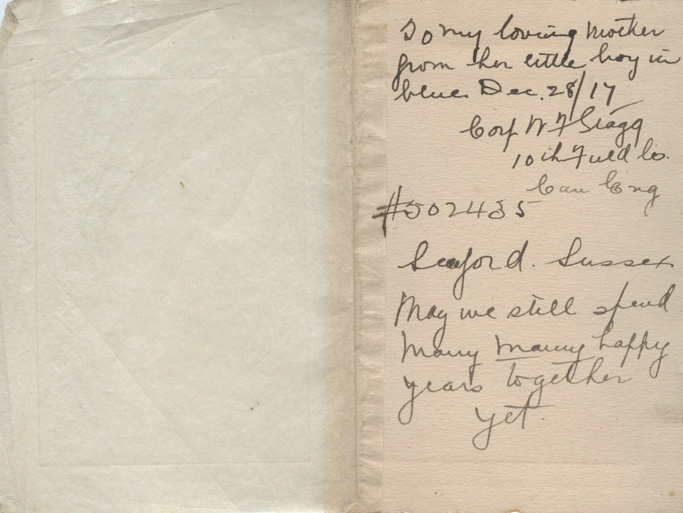 To my loving Mother
from her little boy in
blue Dec. 28/17
Corp W F Gragg
10th Field Co.
Can Eng
#502435
Seaford. Sussex
May we still spend
many many happy
years together
yet.